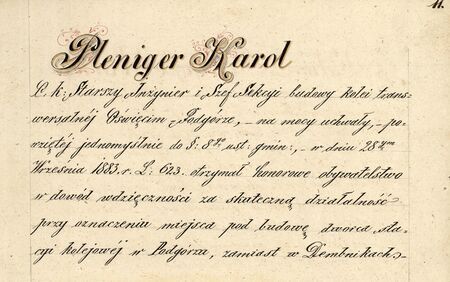 11.
Pleniger Karol
C. k: Starszy Inżynier i Szef Sekcyi budowy kolei trans-
wersalnéj Oświęcim-Podgórze, - na mocy uchwały, - po-
wziętéj jednomyślnie do §: 8go ust: gmin:, - w dniu 28ym
Września 1883.r. L: 623. otrzymał honorowe obywatelstwo
w dowód wdzięczności za skuteczną działalność
przy oznaczeniu miejsca pod budowę dworca sta-
cyi kolejowéj w Podgórzu, zamiast w Dembnikach.-